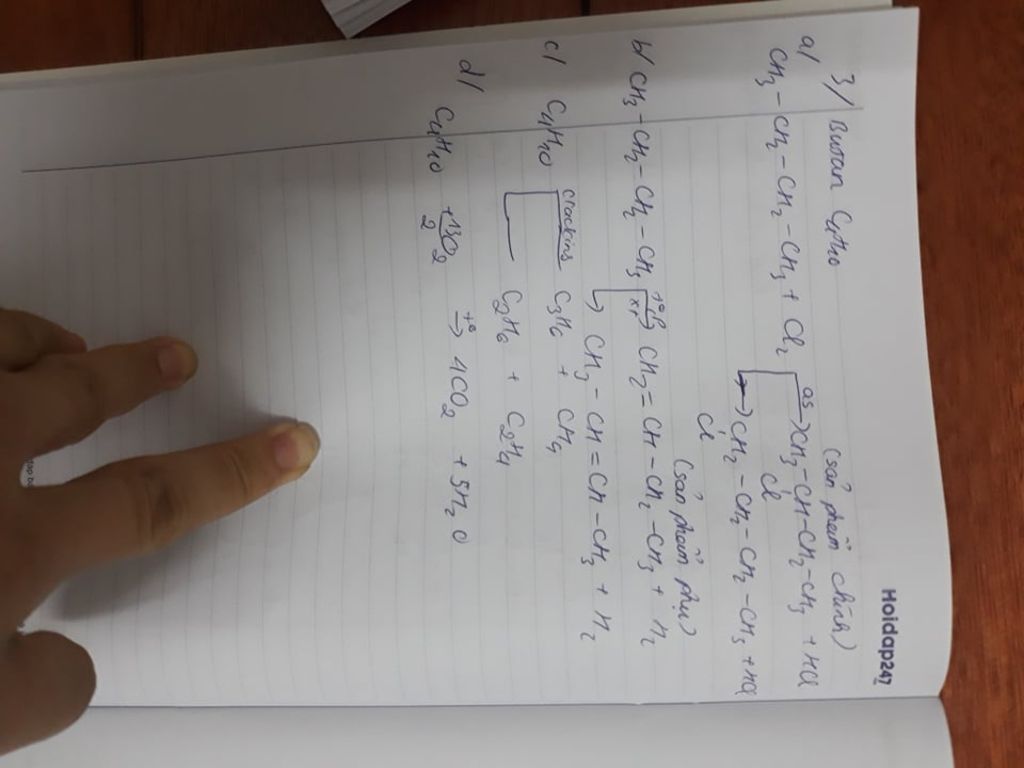 Hoidap247
3/ Butan C4H10
(sản phẩm chính)
a/ CH3-CH2-CH2-CH3 + Cl2 as→ CH3-CH-CH2-CH3 + HCl
Cl
→ CH2-CH2-CH2-CH3 + HCl
Cl
(sản phẩm phụ)
b/ CH3-CH2-CH2-CH3 t° xt→ CH2=CH-CH2-CH3 + H2
→ CH3-CH=CH-CH3 + H2
c/ C4H10 cracking C3H6 + CH4
C2H6 + C2H4
d/ C4H10 + 13/2 O2 t°→ 4CO2 + 5H2O